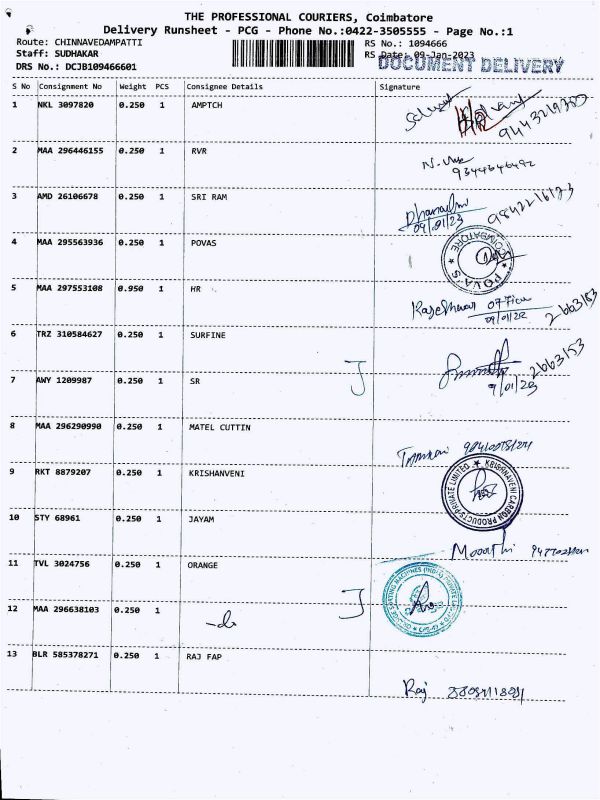 THE PROFESSIONAL COURIERS, Coimbatore
Delivery Runsheet - PCG - Phone No.:0422-3505555 - Page No.:1
Route: CHINNAVEDAMPATTI RS No.: 1094666
Staff: SUDHAKAR RS Date: 09-Jan-2023
DOCUMENT DELIVERY
DRS No.: DCJB109466601
S No Consignment No Weight PCS Consignee Details Signature
1 NKL 3097820 0.250 1 AMPTCH
2 MAA 296446155 0.250 1 RVR
9344646492
3 AMD 26106678 0.250 1 SRI RAM
09/01/23
4 MAA 295563936 0.250 1 POVAS
POVA'S COIMBATORE
5 MAA 297553108 0.950 1 HR
2663153
6 TRZ 310584627 0.250 1 SURFINE
2663153
7 AWY 1209987 0.250 1 SR
9/01/23
8 MAA 296290990 0.250 1 MATEL CUTTIN
9 RKT 8879207 0.250 1 KRISHANVENI
KRISHNAVENI CARBON PRODUCTS PRIVATE LIMITED
10 STY 68961 0.250 1 JAYAM
Moorthi
11 TVL 3024756 0.250 1 ORANGE
12 MAA 296638103 0.250 1
-do
13 BLR 585378271 0.250 1 RAJ FAP
Raj